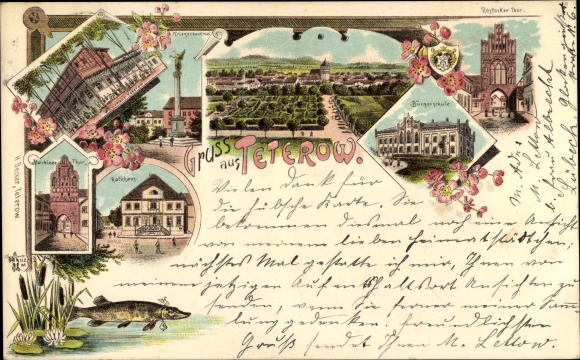 Kriegerdenkmal
Rostocker Thor.
Bürgerschule
Gruss
aus TETEROW.
Malchiner Thor.
Rathhaus
Vielen Dank für
die hübsche Karte. Sie
bekommen diesmal noch eine Ansicht
von meinem lieben Heimatstädtchen,
nächstes Mal gestatte ich mir, Ihnen von
meinem jetzigen Aufenthaltsort Ansichten zu
senden, wenn Sie ferner meiner Samm-
lung gedenken. Freundlichsten
Gruß sendet Ihnen M. Lettow.
M. Lettow
Lübeck